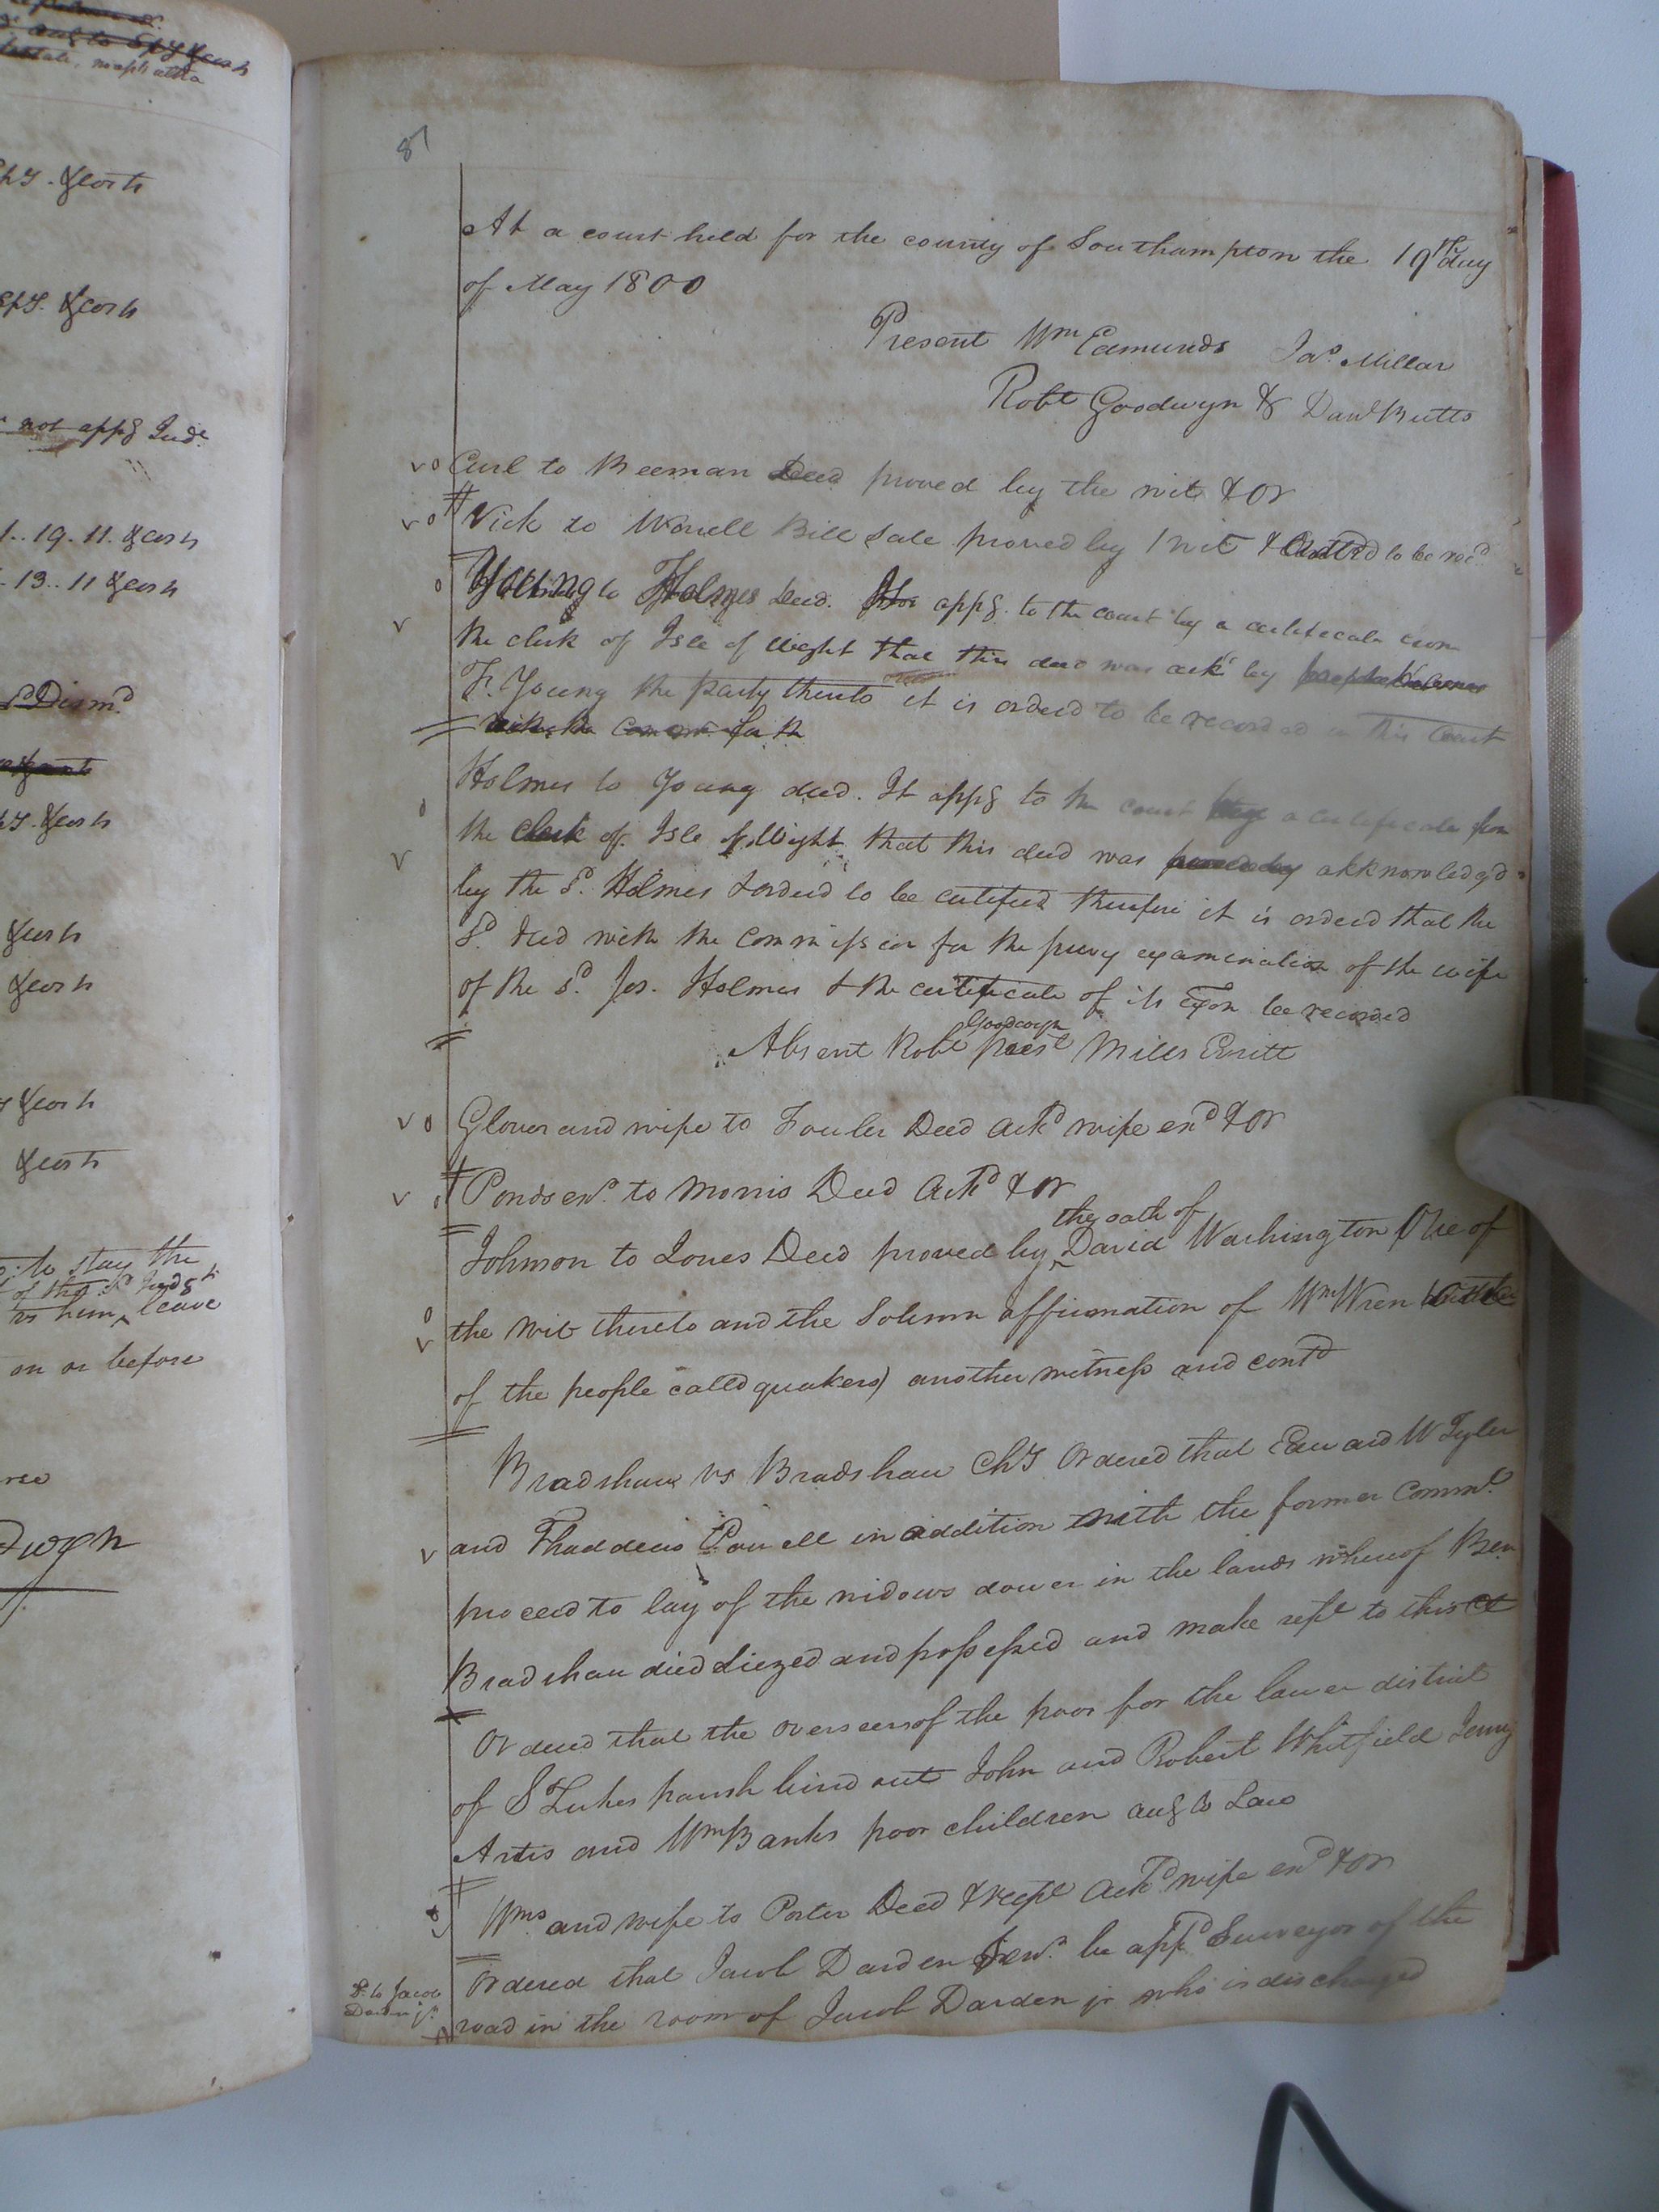 not appg Judt
1..19..11. & costs
13..11 & costs
Dismd
& costs
to stay the
vs him, leave
on or before
At a court held for the county of Southampton the 19th day
of May 1800
Present Wm Edmunds Jas. Millar
Robt Goodwyn & Danl Butts
Curl to Beeman Deed proved by the wit & OR
Vick to Worrell Bill Sale proved by 1 wit & Ordd to be recd
Young to Holmes Deed. appg. to the court by a certificate from
the clerk of Isle of Wight that this deed was ackd by
F. Young the party thereto it is ordered to be recorded in this Court
Holmes to Young deed. It appg to the court by a certificate from
the clerk of Isle of Wight that this deed was akknowledgd
by the sd. Holmes & ordered to be certified therefore it is ordered that the
sd. deed with the commission for the privy examination of the wife
of the sd. Jos. Holmes & the certificate of its Exon be recorded
Absent Robt Goodwyn prest Mills Eritt
Glover and wife to Fowler Deed Ackd wife exd & OR
Ponds exr. to Morris Deed Ackd & OR
Johnson to Jones Deed proved by the oath of David Washington One of
the wit thereto and the Solemn affirmation of Wm Wren
of the people called quakers) another witness and contd
Bradshaw vs Bradshaw Chy Ordered that Edward W Tyler
and Thaddeus Powell in addition with the former Commrs
proceed to lay of the widows dower in the lands whereof Ben
Bradshaw died Siezed and possessed and make rept to this Ct
Ordered that the Overseers of the poor for the lower district
of St Lukes parish bind out John and Robert Whitfield Jenny
Artis and Wm Banks poor children accg to Law
Wms and wife to Porter Deed & recpt Ackd wife exd & OR
Ordered that Jacob Darden Senr. be appd Surveyor of the
road in the room of Jacob Darden jr who is discharged
to Jacob
Darden jr.